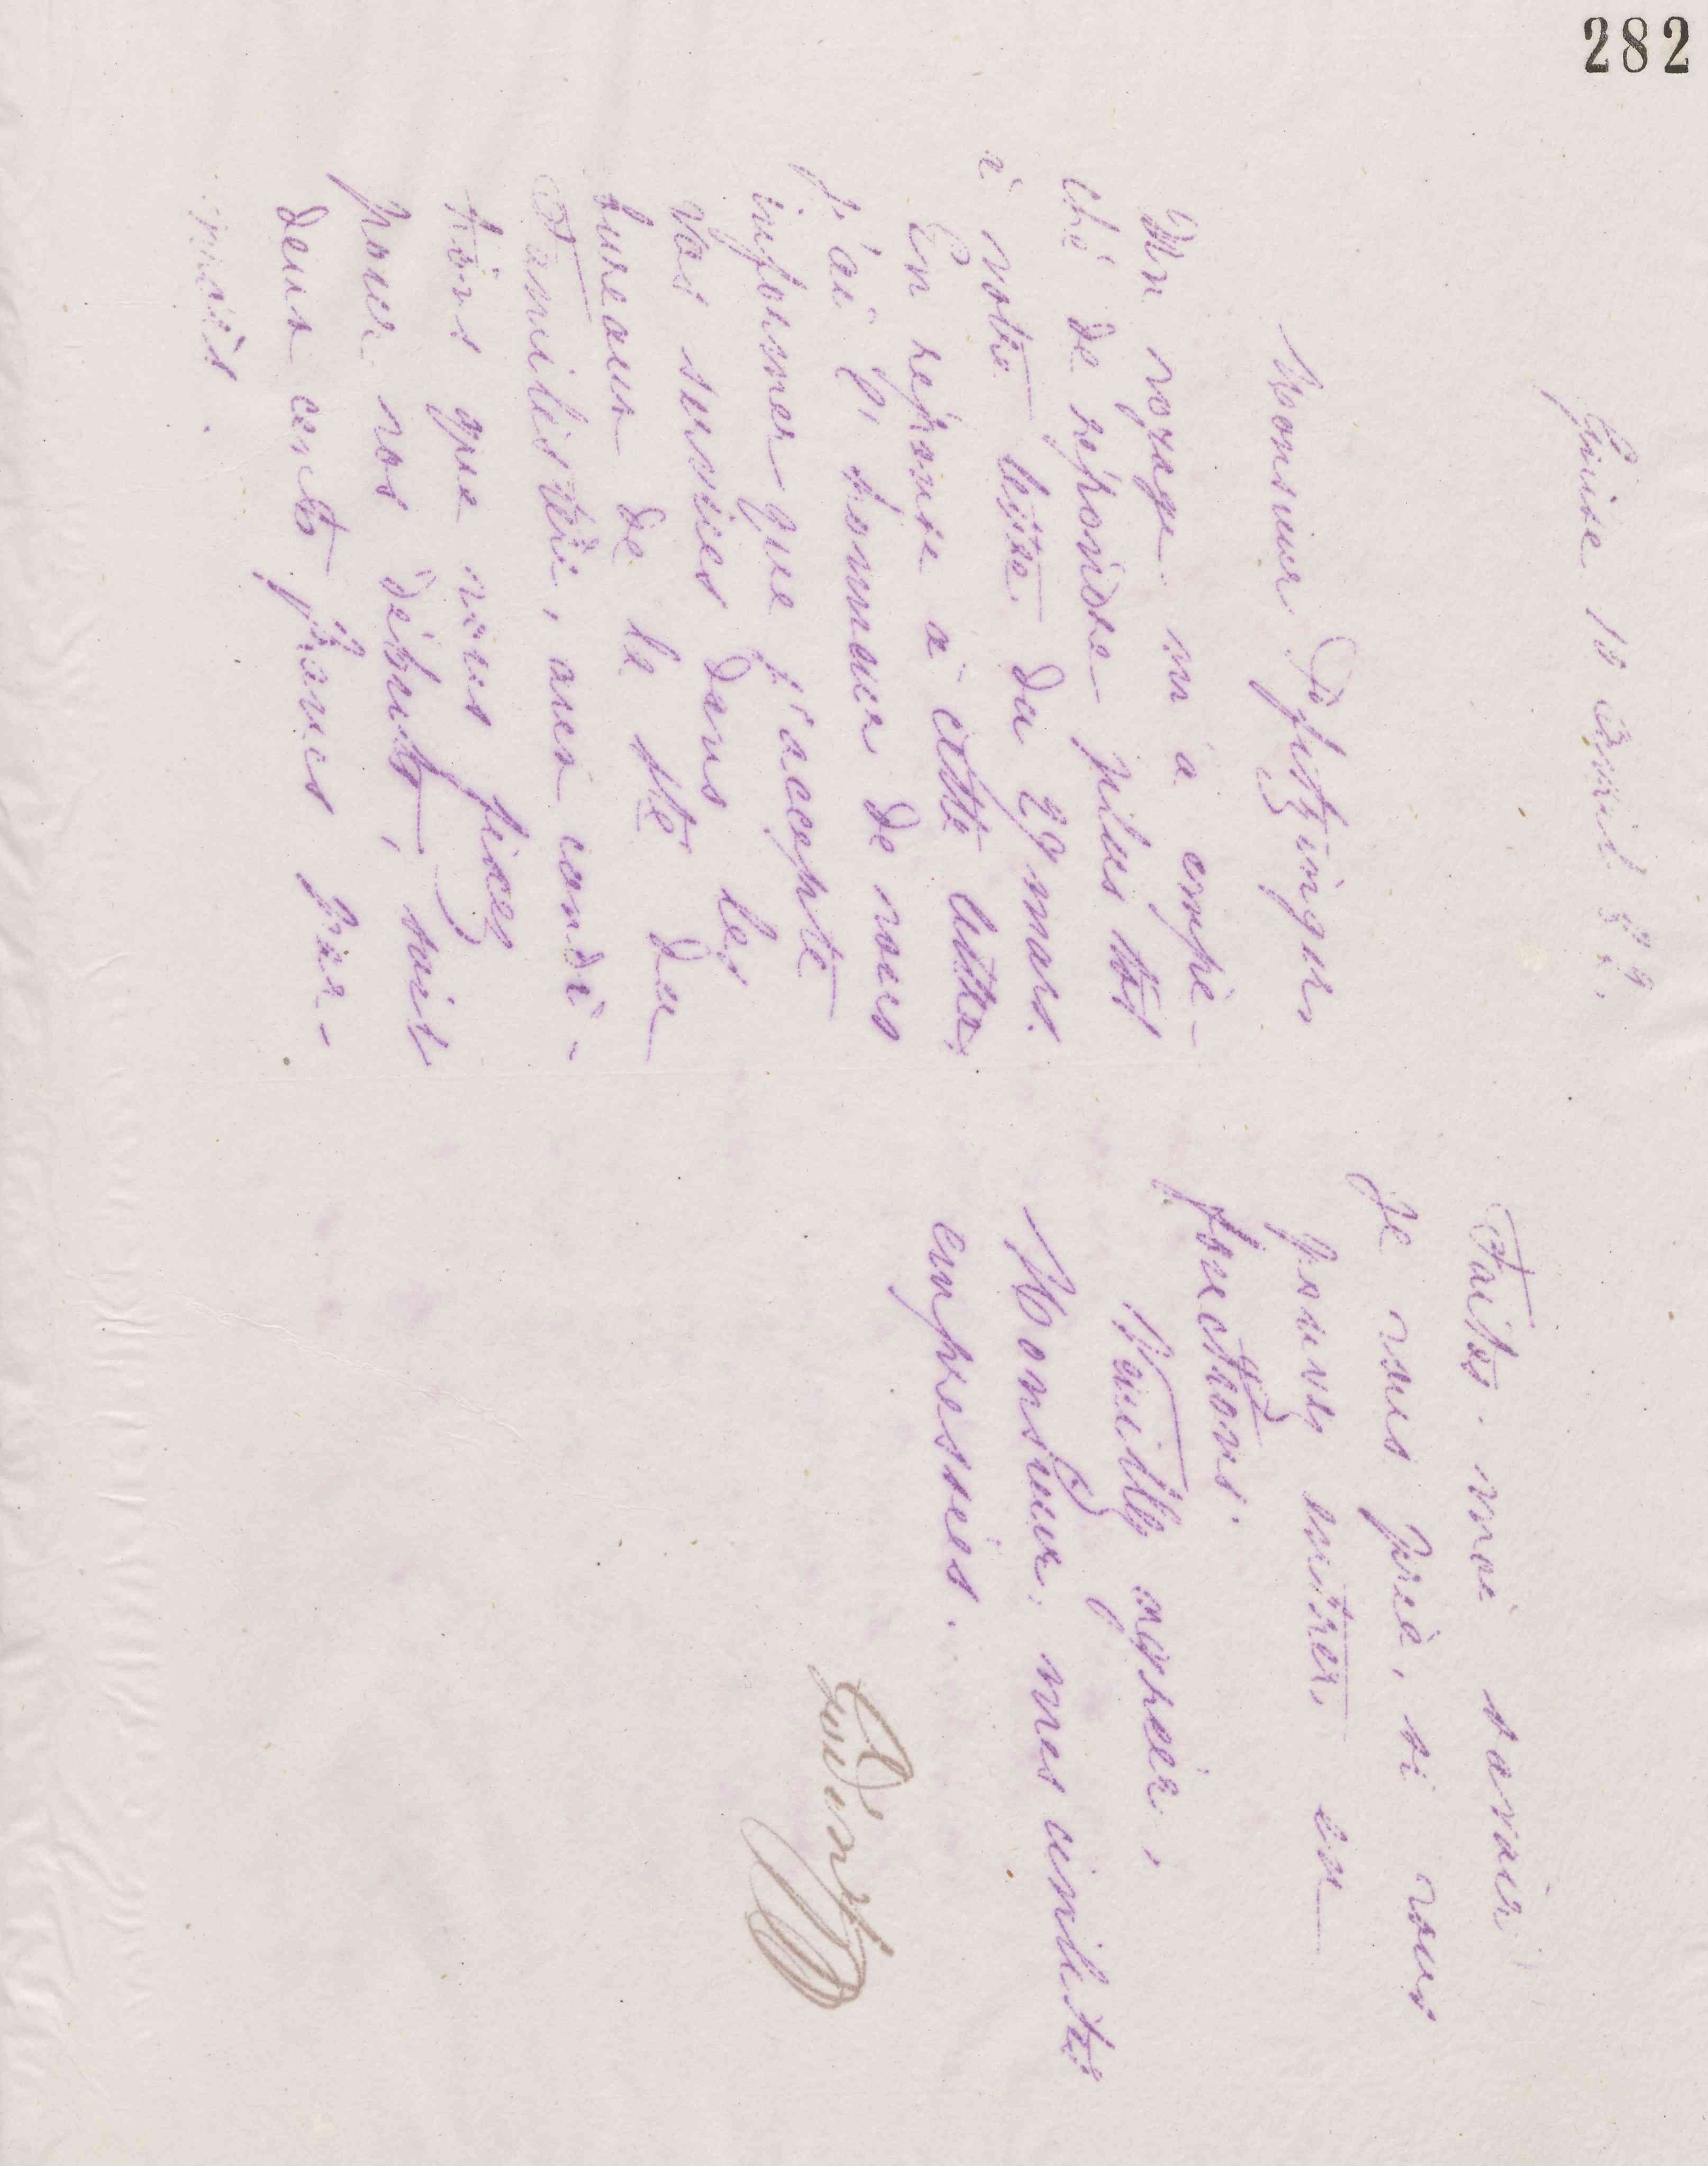 282
Guise 10 avril 82.
Monsieur
Un voyage m'a empê-
ché de répondre plus tôt
à votre lettre du 29 mars.
En réponse à cette lettre,
j'ai l'honneur de vous
informer que j'accepte
vos services dans les
bureaux de la Sté du
Familistère, aux condi-
tions que vous fixez
pour vos débuts, soit
deux cents francs par
mois.
Faites-moi savoir
je vous prie, si vous
pouvez entrer en
fonctions.
Veuillez agréer,
Monsieur, mes civilités
empressées.
Godin